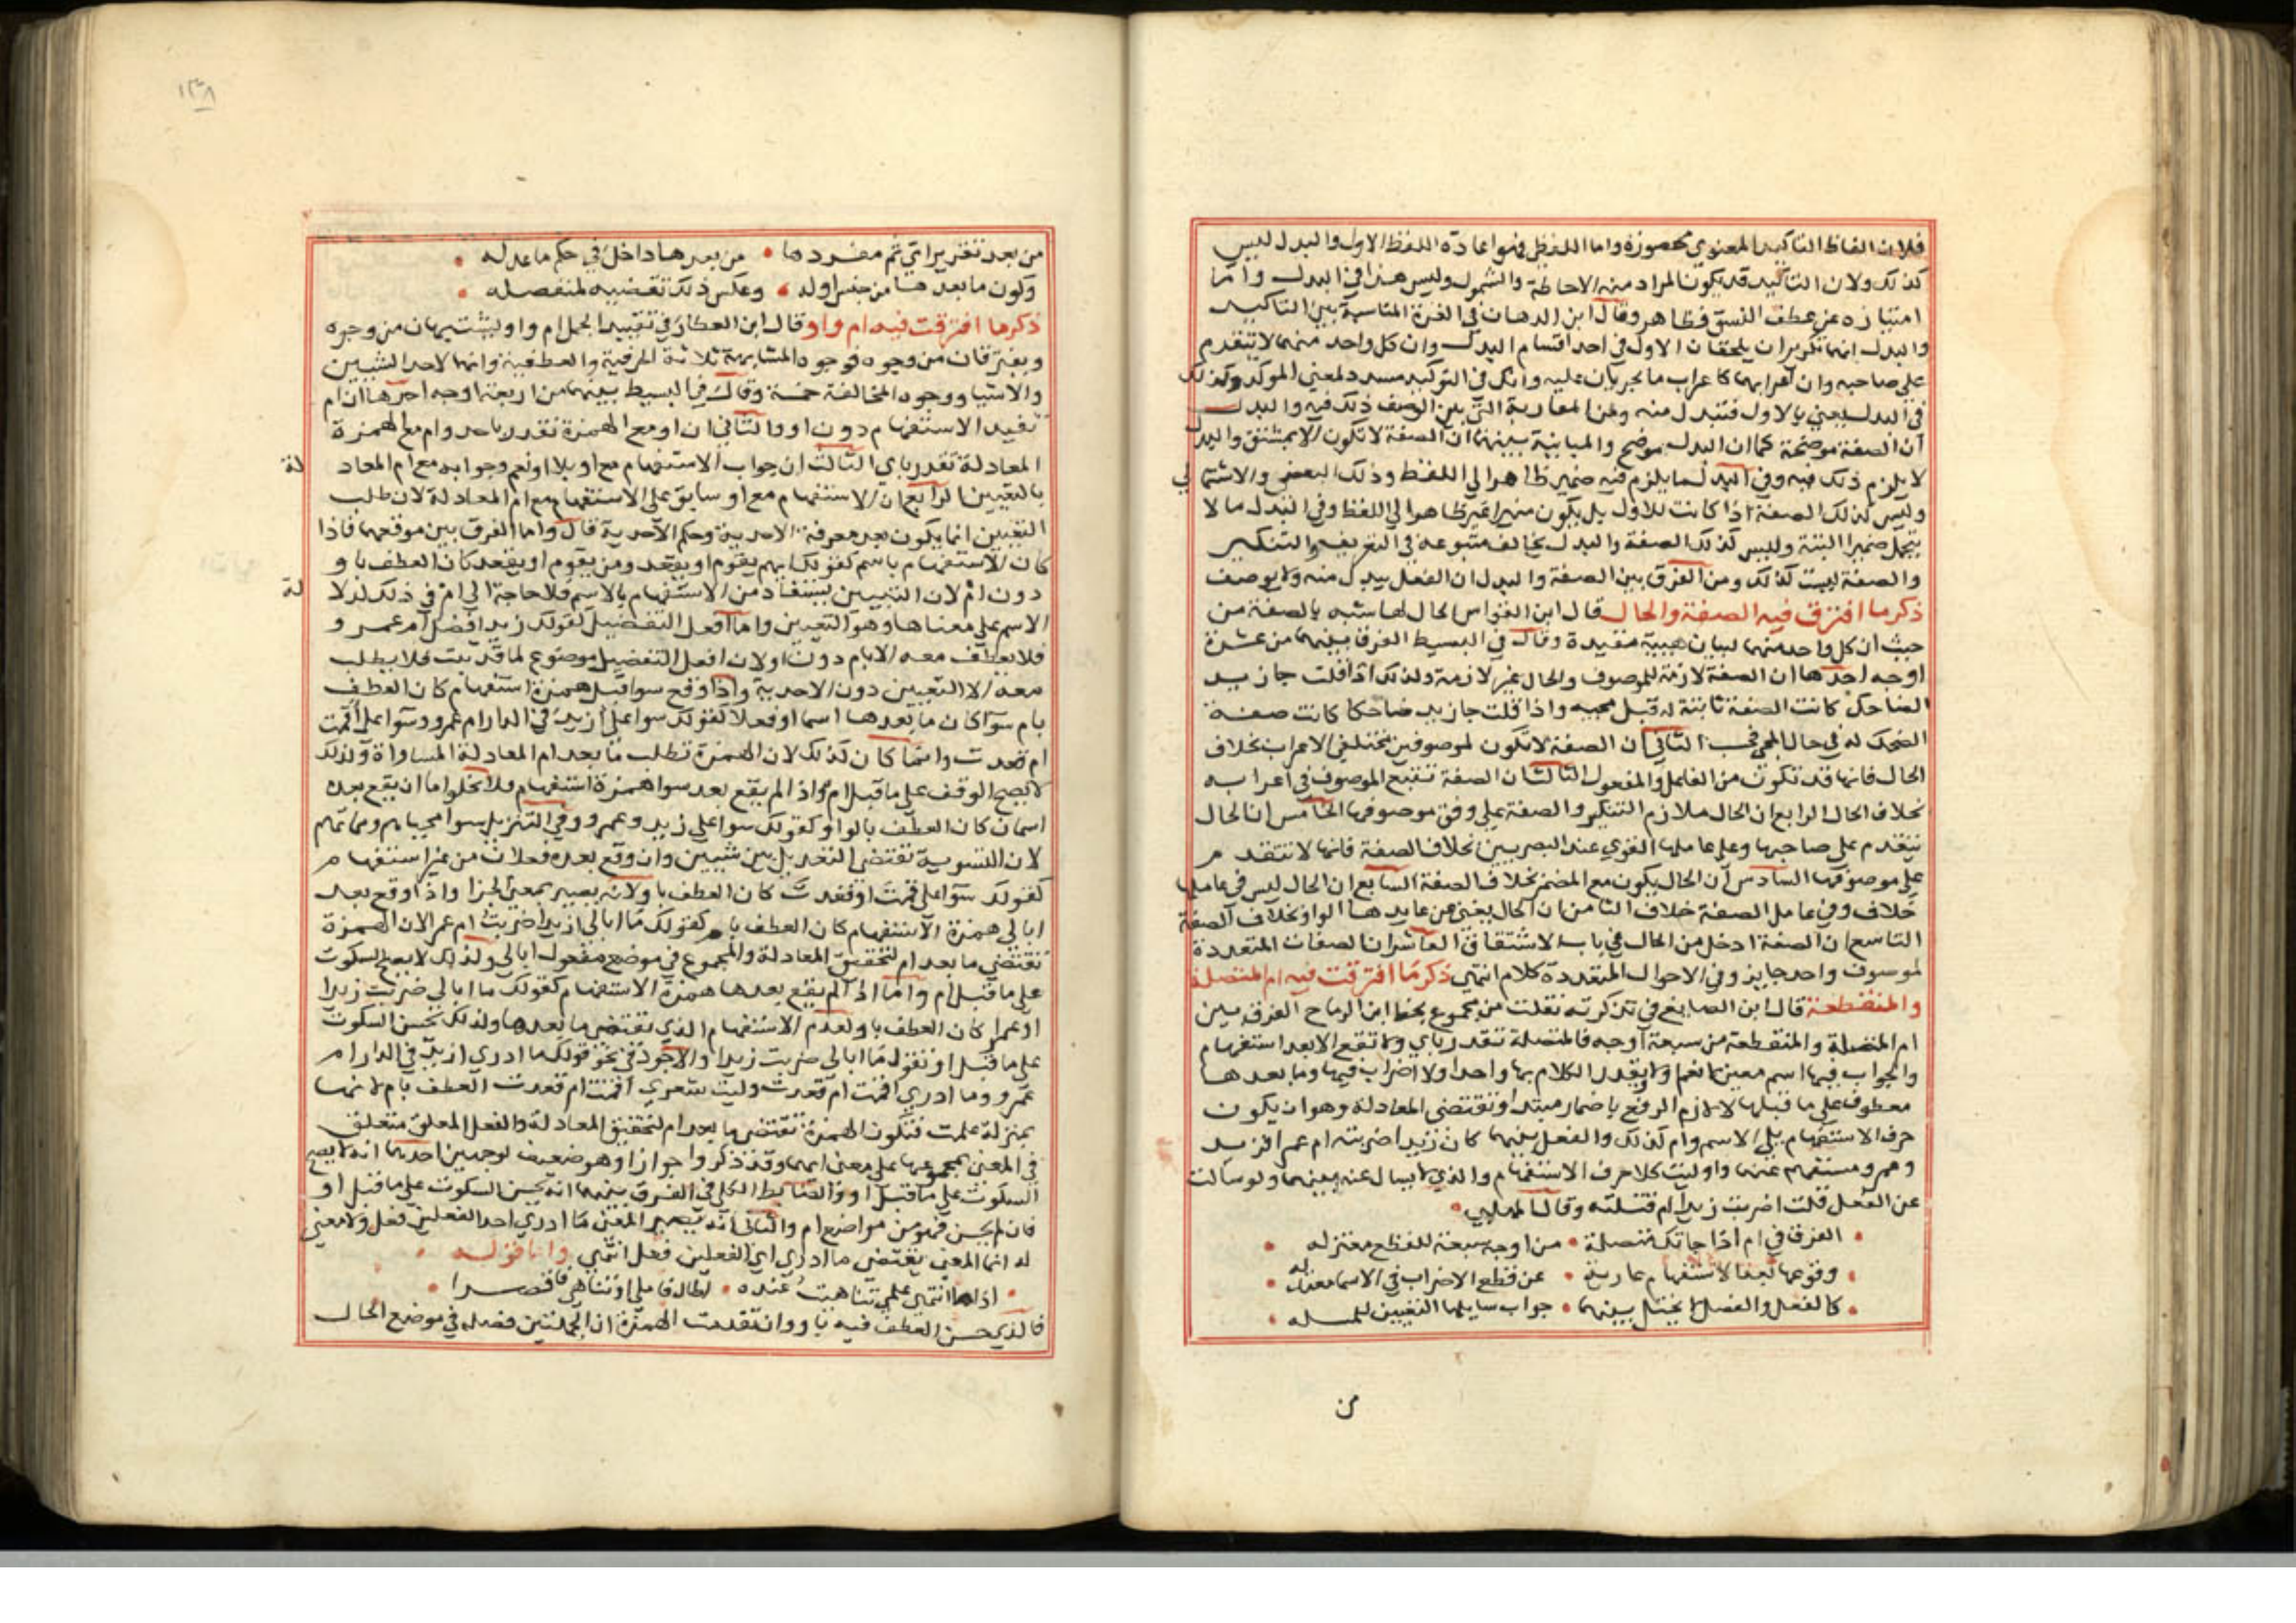 فلان الفاظ التاكيد المعنوي محصورة واما اللفظي فهو اعادة اللفظ الاول والبدل ليس
كذلك ولان التاكيد قد يكون المراد منه الاحاطة والشمول وليس هذا في البدل واما
امتيازه عن عطف النسق فظاهر وقال ابن الدهان في الغرة المناسبة بين التاكيد
والبدل انهما تكريران يلحقان الاول في احد اقسام البدل وان كل واحد منهما لا يتقدم
على صاحبه وان اعرابهما كاعراب ما يجريان عليه وانك في التوكيد مسدد لمعنى الموكد وكذلك
في البدل يعني بالاول فتبدل منه ومن المقاربة التي بين الوصف ذلك فيه والبدل
ان الصفة موضحة كما ان البدل موضح والمباينة بينهما ان الصفة لا تكون الا بمشتق والبدل
لا يلزم ذلك فيه وفي البدل ما يلزم فيه ضمير ظاهر الى اللفظ وذلك البعض والاشتمالي
وليس كذلك الصفة اذا كانت للاول بل يكون ضميرا غير ظاهر الى اللفظ وفي البدل ما لا
يتحمل ضميرا البتة وليس كذلك الصفة والبدل يخالف متبوعه في التعريف والتنكير
والصفة ليست كذلك ومن الفرق بين الصفة والبدل ان الفعل يبدل منه ولا يوصف
ذكر ما افترق فيه الصفة والحال قال ابن القواس الحال لها شبه بالصفة من
حيث ان كل واحد منهما لبيان هيية مقيدة وقال في البسيط الفرق بينهما من عشرة
اوجه احدها ان الصفة لازمة للموصوف والحال غير لازمة ولذلك اذا قلت جا زيد
الضاحك كانت الصفة ثابتة له قبل مجيه واذا قلت جا زيد ضاحكا كانت صفة
الضحك له في حال المجي فحسب الثاني ان الصفة لا تكون لموصوفين مختلفي الاعراب بخلاف
الحال فانها قد تكون من الفاعل والمفعول الثالث ان الصفة تتبع الموصوف في اعرابه
بخلاف الحال الرابع ان الحال ملازم التنكير والصفة على وفق موصوفها الخامس ان الحال
تتقدم على صاحبها وعلى عاملها القوي عند البصريين بخلاف الصفة فانها لا تتقدم
على موصوفها السادس ان الحال يكون مع المضمر بخلاف الصفة السابع ان الحال ليس في عاملها
خلاف وفي عامل الصفة خلاف الثامن ان الحال يغني عن عايدها الواو بخلاف الصفة
التاسع ان الصفة ادخل من الحال في باب الاشتقاق العاشر ان الصفات المتعددة
لموصوف واحد جايز وفي الاحوال المتعددة كلام انتهى ذكر ما افترقت فيه ام المتصلة
والمنقطعة قال ابن الصايغ في تذكرته نقلت من مجموع بخط ابن الرماح الفرق بين
ام المتصلة والمنقطعة من سبعة اوجه فالمتصلة تقدر باي ولا تقع الا بعد استفهام
والجواب فيها اسم معين لا نعم ولا ويقدر الكلام بها واحدا ولا اضراب فيها وما بعدها
معطوف على ما قبلها لا لازم الرفع باضمار مبتدا وتقتضي المعادلة وهو ان يكون
حرف الاستفهام يلي الاسم وام كذلك والفعل بينهما كان زيدا ضربته ام عمرا فزيد
وعمرو مستفهم عنهما واوليت كلا حرف الاستفهام والذي لا يسال عنه بينهما ولو سالت
عن الفعل قلت اضربت زيدا ام قتلته وقال المهلبي
الفرق في ام اذا جاتك متصلة من اوجه سبعة للقطع معتزله
وقوعها بعد الاستفهام عارية عن قطع الاضراب في الاسما معتدله
كالفعل والفصل لا يختل بينهما جواب سايلها التعيين للمسله
من
١٣٨
من بعد تقدير اي ثم مفردها من بعدها داخل في حكم ما عدله
وكون ما بعدها من جنس اوله وعكس ذلك تقضيه لمنفصله
ذكر ما افترقت فيه ام واو قال ابن العطار في تقييد الجمل ام واو يشتبهان من وجوه
ويفترقان من وجوه فوجوه المشابهة ثلاثة الحرفية والعطفية وانهما لاحد الشيين
والاشيا ووجوه المخالفة خمسة وقال في البسيط بينهما من اربعة اوجه احدها ان ام
تفيد الاستفهام دون او والثاني ان او مع الهمزة تقدر باحد وام مع الهمزة
المعادلة تقدر باي الثالث ان جواب الاستفهام مع او بلا او نعم وجوابه مع ام المعادلة
بالتعيين الرابع ان الاستفهام مع او سابق على الاستفهام مع ام المعادلة لان طلب
التعيين انما يكون بعد معرفة الاحدية وحكم الاحدية قال واما الفرق بين موقعهما فاذا
كان الاستفهام باسم كقولك ايهم يقوم او يقعد ومن يقوم او يقعد كان العطف باو
دون ام لان التعيين يستفاد من الاستفهام بالاسم فلا حاجة الى ام في ذلك لدلالة
الاسم على معناها وهو التعيين واما افعل التفضيل كقولك زيد افضل ام عمرو
فلا يعطف معه الا بام دون او لان افعل التفضيل موضوع لما قد ثبت فلا يطلب
معه الا التعيين دون الاحدية واذا وقع سوا قبل همزة استفهام كان العطف
بام سوا كان ما بعدها اسما او فعلا كقولك سوا علي ازيد في الدار ام عمرو وسوا علي اقمت
ام قعدت وانما كان كذلك لان الهمزة تطلب ما بعد ام المعادلة المساواة ولذلك
لا يصح الوقف على ما قبل ام واذا لم يقع بعد سوا همزة استفهام فلا يخلوا اما ان يقع بعده
اسمان كان العطف بالواو كقولك سوا علي زيد وعمرو وفي التنزيل سوا محياهم ومماتهم
لان التسوية تقتضي التعديل بين شيين وان وقع بعده فعلان من غير استفهام
كقولك سوا علي قمت او قعدت كان العطف باو لانه يصير بمعنى الجزا واذا وقع بعد
ابالي همزة الاستفهام كان العطف بام كقولك ما ابالي ازيدا ضربت ام عمرا لان الهمزة
تقتضي ما بعد ام لتحقيق المعادلة والمجموع في موضع مفعول ابالي ولذلك لا يصح السكوت
على ما قبل ام واما اذا لم يقع بعدها همزة الاستفهام كقولك ما ابالي ضربت زيدا
او عمرا كان العطف باو لعدم الاستفهام الذي تقتضي ما بعدها ولذلك يحسن السكوت
على ما قبل او تقول ما ابالي ضربت زيدا والاجود في نحو قولك ما ادري ازيد في الدار ام
عمرو وما ادري اقمت ام قعدت وليت شعري اقمت ام قعدت العطف بام لانها
بمنزلة علمت فتكون الهمزة تقتضي ما بعد ام لتحقيق المعادلة والفعل المعلق متعلق
في المعنى بمجموعها على معنى ايهما وقد ذكر واجواز او وهو ضعيف لوجهين احدهما انه لا يصح
السكوت على ما قبل او والضابط الكلي في الفرق بينهما انه يحسن السكوت على ما قبل او
فان لم يحسن فهو من مواضع ام والثاني انه يصير المعنى ما ادري احد الفعلين فعل ولا معنى
له انما المعنى يقتضي ما ادري اي الفعلين فعل انتهى واما قوله
اذا ما انتهى علمي تناهيت عنده اطال فاملى او تناهى فاقصرا
فالذي حسن العطف فيه باو وان تقدمت الهمزة ان الجملتين فضله في موضع الحال